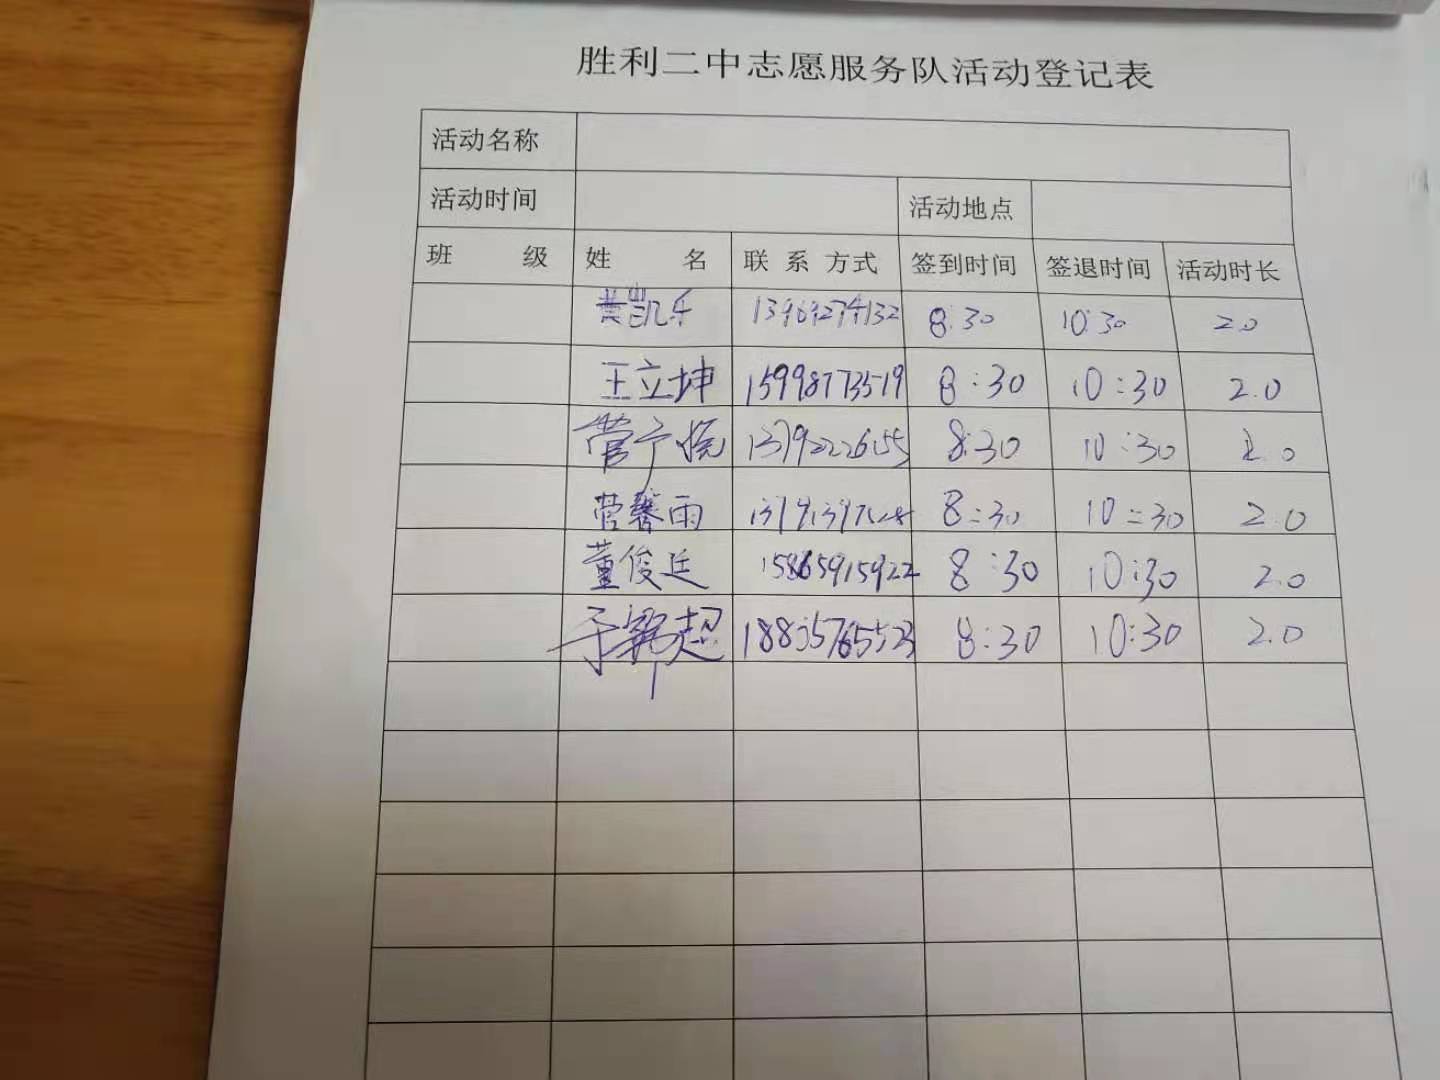 胜利二中志愿服务队活动登记表
活动名称
活动时间 活动地点
班 级 姓 名 联系方式 签到时间 签退时间 活动时长
黄凯乐 13969274132 8:30 10:30 2.0
王立坤 15998773519 8:30 10:30 2.0
管宁 8:30 10:30 2.0
管馨雨 8:30 10:30 2.0
董俊廷 15865915922 8:30 10:30 2.0
于 超 18835765523 8:30 10:30 2.0